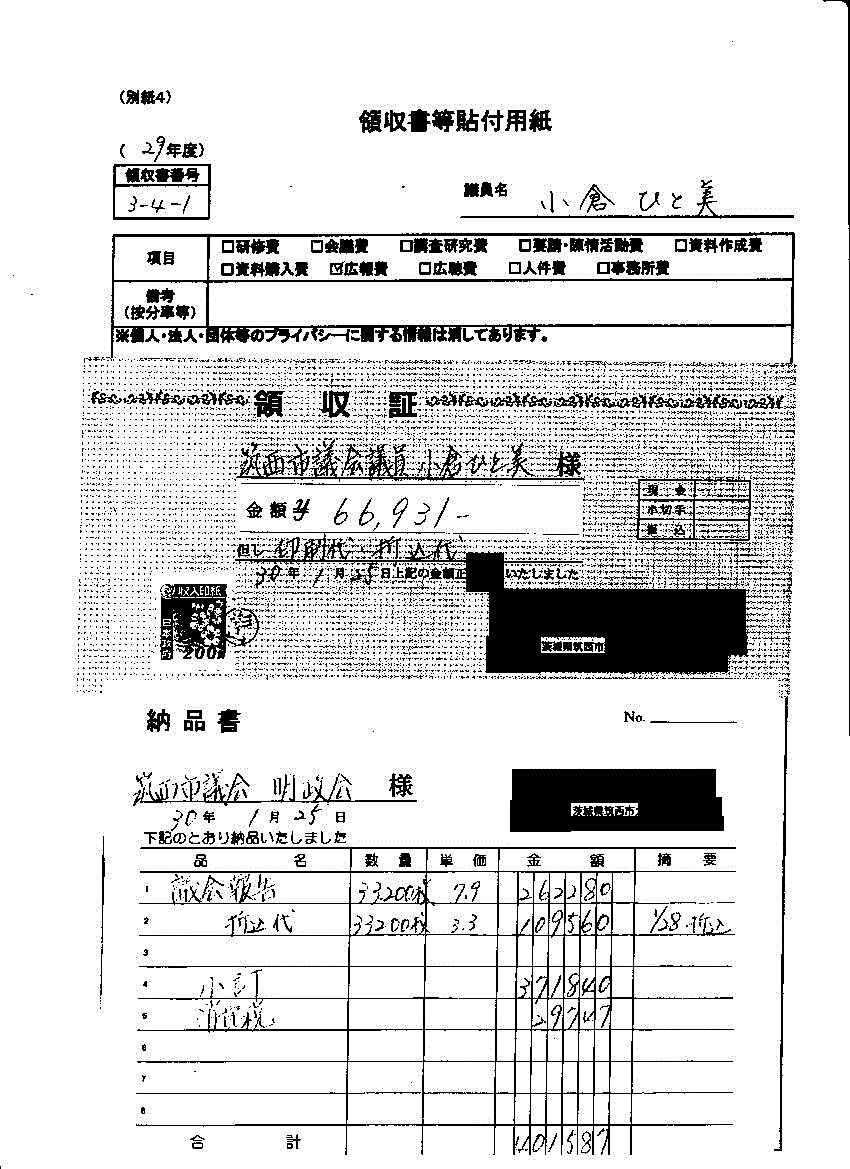 （別紙4）
領収書等貼付用紙
（ 29年度）
領収書番号
3-4-1
議員名 小倉 ひと美
項目
□研修費 □会議費 □調査研究費 □要請・陳情活動費 □資料作成費
□資料購入費 ☑広報費 □広聴費 □人件費 □事務所費
備考
（按分率等）
※個人・法人・団体等のプライバシーに関する情報は消してあります。
領収証
筑西市議会議員 小倉ひと美 様
金額 ¥ 66,931-
但し 印刷代・折込代
30年 1月 25日上記の金額正 いたしました
現金
小切手
振込
収入印紙
200
茨城県筑西市
納品書
No.
筑西市議会 明政会 様
30年 1月 25日
茨城県筑西市
下記のとおり納品いたしました
品名 数量 単価 金額 摘要
1 議会報告 33,200枚 7.9 262280
2 折込代 33200枚 3.3 109560 1/28 折込
3
4 小計 371840
5 消費税 29747
6
7
8
合計 401587